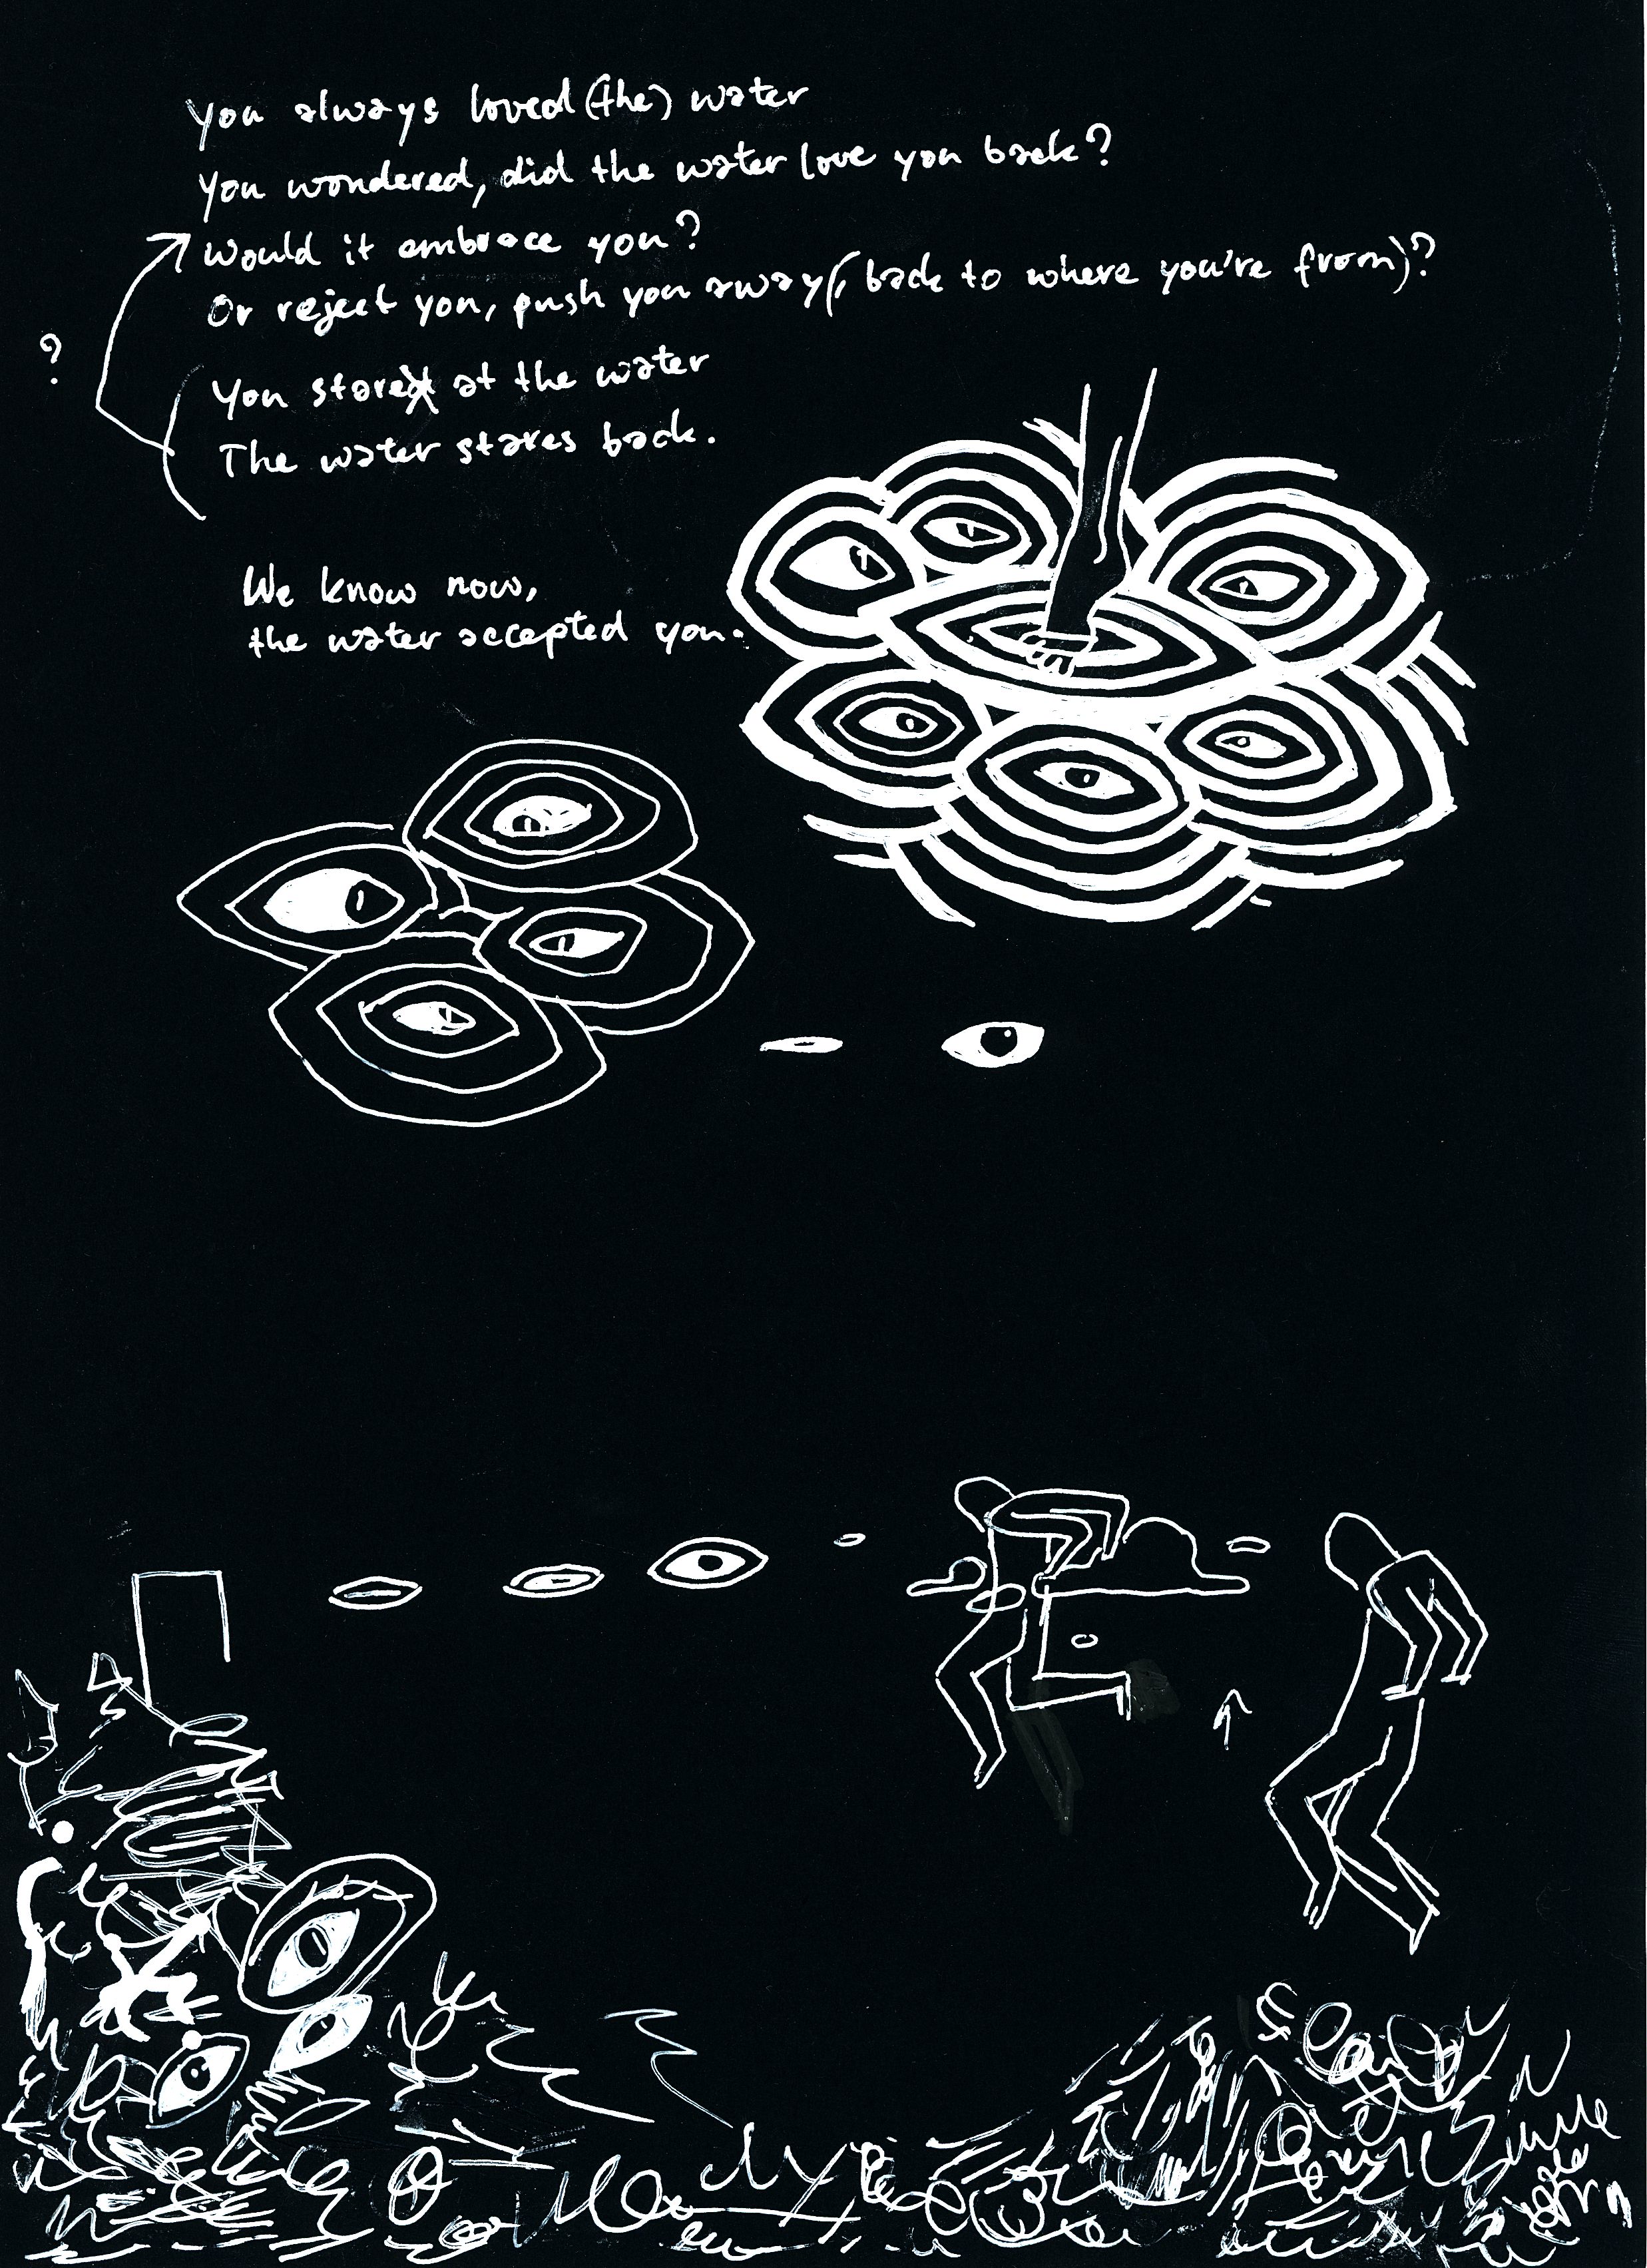 You always loved (the) water
You wondered, did the water love you back?
Would it embrace you?
Or reject you, push you away (, back to where you're from)?
?
You stare at the water
The water stares back.
We know now,
the water accepted you.